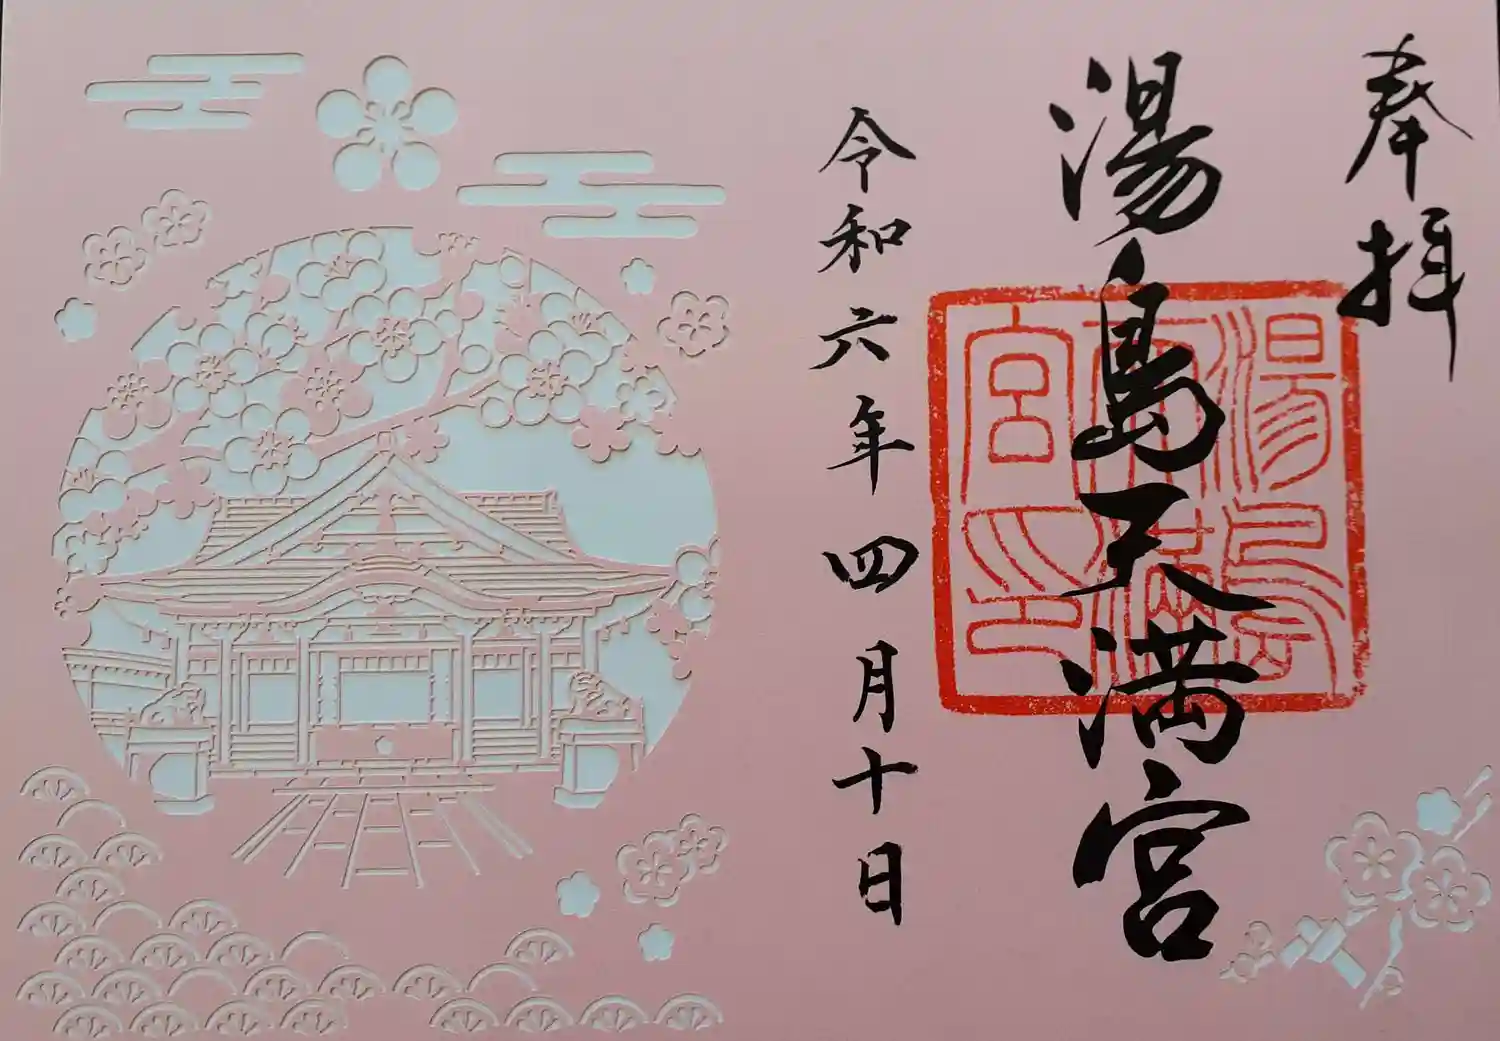 奉拝
湯島天満宮
湯島天満宮印
令和六年四月十日